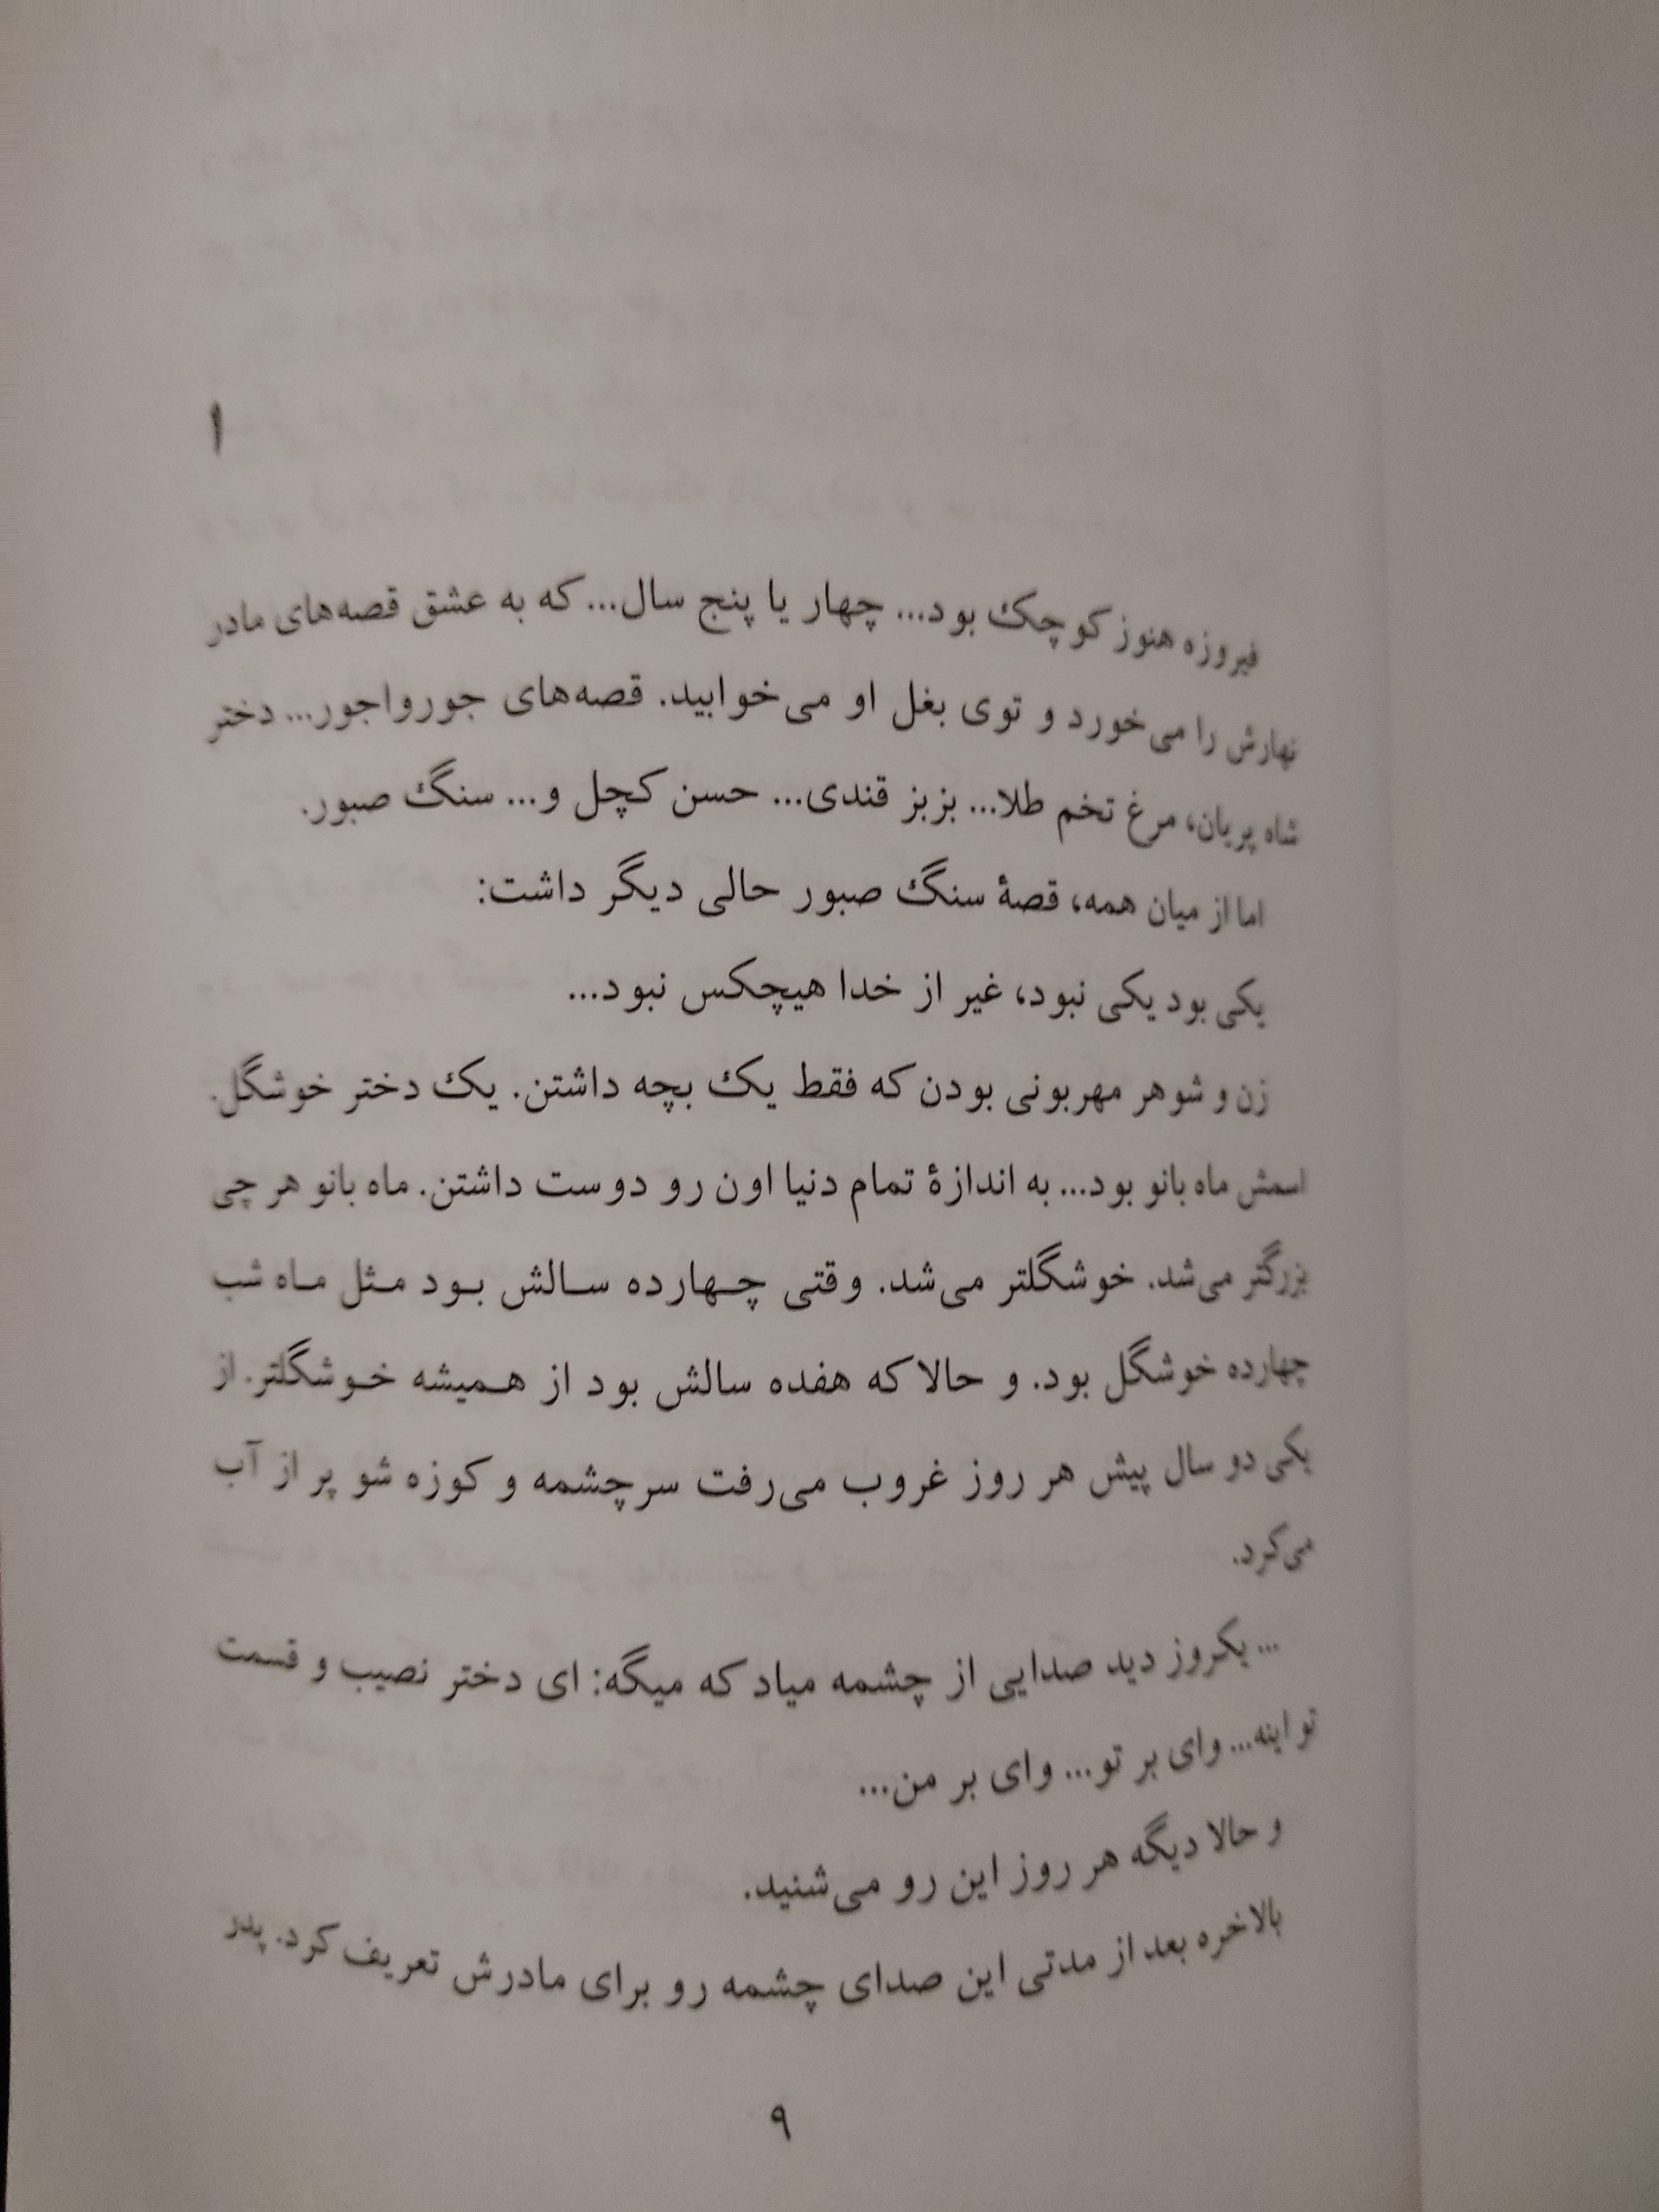 ۱
فیروزه هنوز کوچک بود... چهار یا پنج سال... که به عشق قصه‌های مادر
نهارش را می‌خورد و توی بغل او می‌خوابید. قصه‌های جورواجور... دختر
شاه پریان، مرغ تخم طلا... بزبز قندی... حسن کچل و... سنگ صبور.
اما از میان همه، قصهٔ سنگ صبور حالی دیگر داشت:
یکی بود یکی نبود، غیر از خدا هیچکس نبود...
زن و شوهر مهربونی بودن که فقط یک بچه داشتن. یک دختر خوشگل.
اسمش ماه بانو بود... به اندازهٔ تمام دنیا اون رو دوست داشتن. ماه بانو هر چی
بزرگتر می‌شد. خوشگلتر می‌شد. وقتی چهارده سالش بود مثل ماه شب
چهارده خوشگل بود. و حالا که هفده سالش بود از همیشه خوشگلتر. از
یکی دو سال پیش هر روز غروب می‌رفت سرچشمه و کوزه شو پر از آب
می‌کرد.
... یکروز دید صدایی از چشمه میاد که میگه: ای دختر نصیب و قسمت
تو اینه... وای بر تو... وای بر من...
و حالا دیگه هر روز این رو می‌شنید.
بالاخره بعد از مدتی این صدای چشمه رو برای مادرش تعریف کرد. پدر
۹